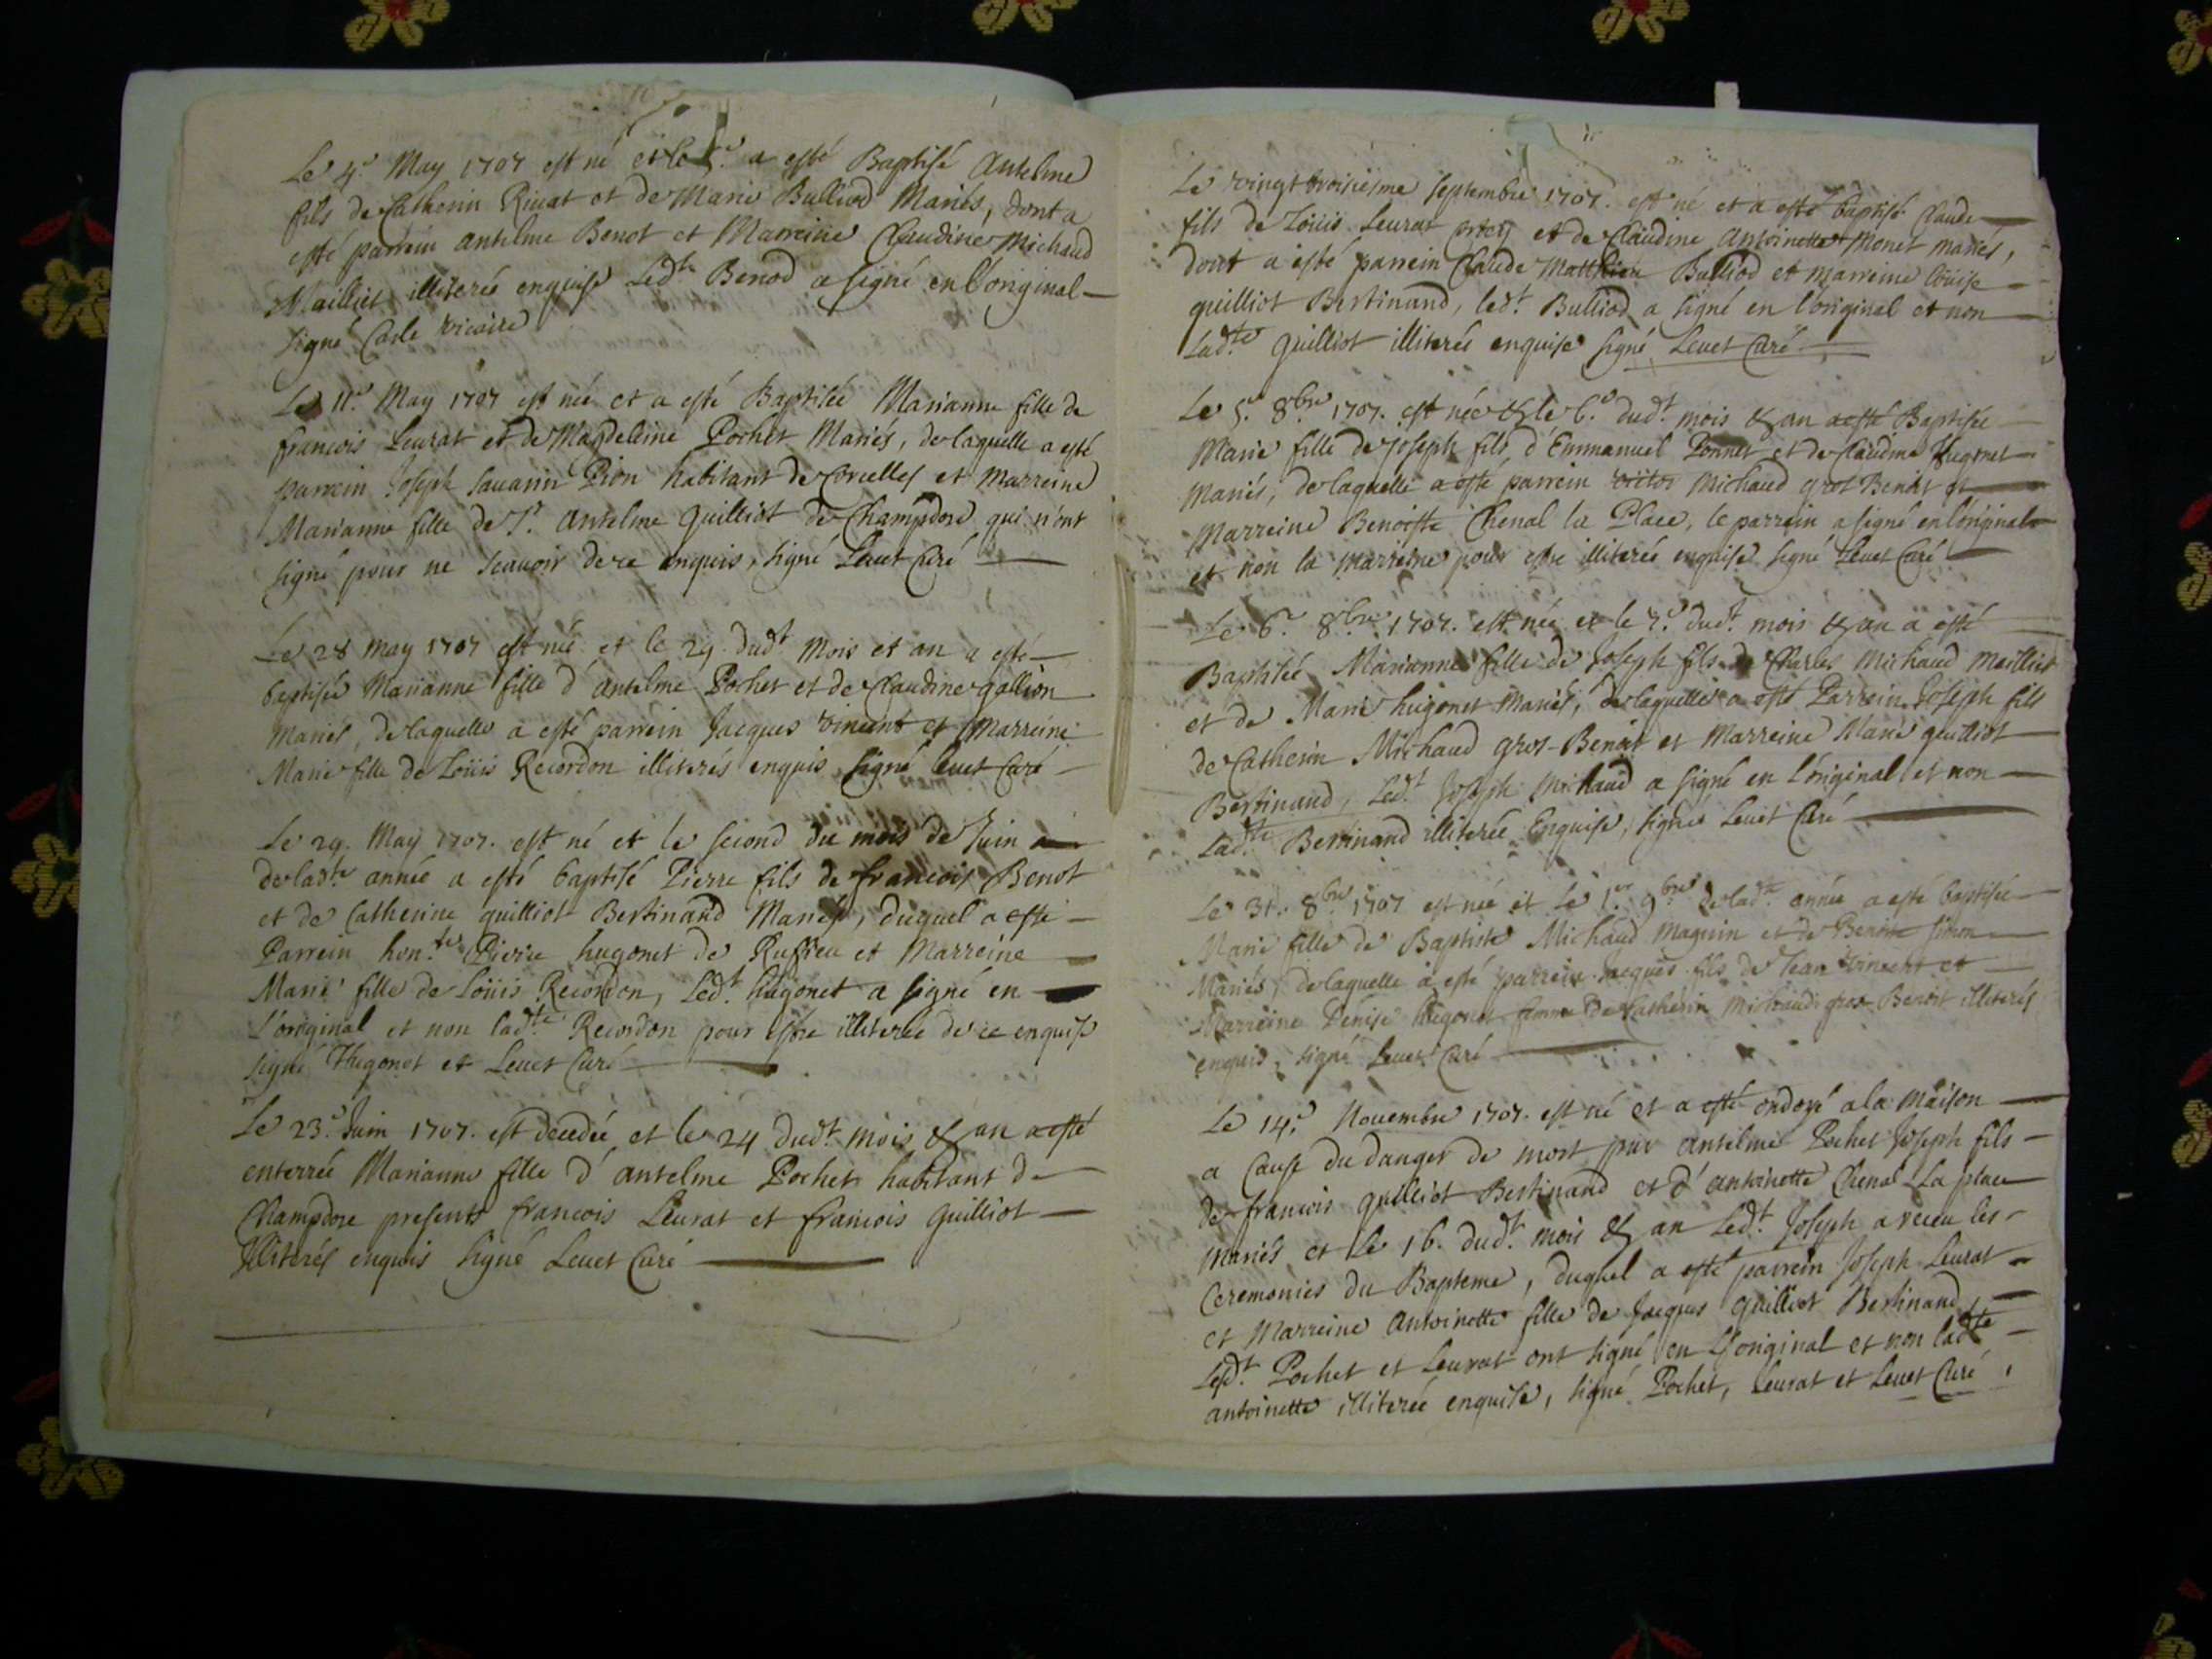 Le 4.e May 1707 est né et le 5.e a esté Baptisé Antelme
fils de Catherin Rivat et de Marie Bulliod Mariés, dont a
esté parrein antelme Benot et Marreine Claudine Michaud
Mailliet illiterée enquise Led.t Benod a signé en l'original
signé Carle vicaire
Le 11.e May 1707 est née et a esté Baptisée Marianne fille de
francois Leurat et de Magdeleine Pochet Mariés, de laquelle a esté
parrein Joseph Sauarin Pion habitant de Corcelles et Marreine
Marianne fille de S.r Antelme Guilliot de Champdore qui n'ont
signé pour ne scauoir de ce enquis, signé Leuet Curé
Le 28 may 1707 est née et le 29 dud.t Mois et an a esté
baptisée Marianne fille d'antelme Pochet et de Claudine gallion
Mariés, de laquelle a esté parrein Jacques vincent et Marreine
Marie fille de Loüis Recordon illiterés enquis signé leuet Curé
Le 29. May 1707. est né et le second du mois de Juin
de lad.te année a esté baptisé Pierre fils de francois Benot
et de Catherine guilliot Bertinand Mariés, duquel a esté
Parrein hon.te Pierre hugonet de Ruffieu et Marreine
Marie fille de Loüis Recordon, Led.t hugonet a signé en
l'original et non lad.te Recordon pour estre illiterée de ce enquise
signé Hugonet et Leuet Curé
Le 23.e Juin 1707. est decedée et le 24 dud.t mois & an a esté
enterrée Marianne fille d'antelme Pochet habitant de
Champdore presents francois Leurat et francois guilliot
Illiterés enquis signé Leuet Curé
Le vingt troisiesme septembre 1707. est né et a esté baptisé Claude
fils de Loüis Leurat et de Claudine Antoinette Monet mariés,
dont a esté parrein Claude Matthieu Bulliod et marreine Loüise
guilliot Bertinand, led.t Bulliod a signé en l'original et non
Lad.te Guilliot illiterée enquise signé Leuet Curé
Le 5.e 8bre 1707. est née & le 6.e dud.t mois & an a esté Baptisée
Marie fille de Joseph fils d'Emmanuel Ponnet et de Claudine Hugonet
Mariés, de laquelle a esté parrein victor Michaud gros Benoit et
Marreine Benoiste Chenal la Place, le parrein a signé en l'original
et non la marreine pour estre illiterée enquise signé Leuet Curé
Le 6.e 8bre 1707. est née et le 7.e dud.t mois & an a esté
Baptisée Marianne fille de Joseph fils de Charles Michaud Mailliet
et de Marie hugonet Mariés, de laquelle a esté Parrein Joseph fils
de Catherin Michaud gros-Benoit et Marreine Marie guilliot
Bertinand, Led.t Joseph Michaud a signé en l'original et non
Lad.te Bertinand illiterée Enquise, signé Leuet Curé
Le 31.e 8bre 1707 est née et Le 1.er 9bre de lad.te année a esté baptisée
Marie fille de Baptiste Michaud Maguin et de Benoite simon
Mariés, de laquelle a esté parrein Jacques fils de Jean vincent et
Marreine Denise hugonet femme de Catherin Michaud gros Benoit illiterés
enquis, signé Leuet Curé
Le 14.e Nouembre 1707. est né et a esté ondoyé a la maison
a Cause du danger de mort par antelme Pochet Joseph fils
de francois guilliot Bertinand et d'antoinette Chenal La place
mariés et Le 16. dud.t mois & an Led.t Joseph a receu les
Ceremonies du Bapteme, duquel a esté parrein Joseph Leurat
et Marreine Antoinette fille de Jacques guilliot Bertinand,
Lesd.t Pochet et Leurat ont signé en l'original et non lad.te
antoinette illiterée enquise, signé Pochet, Leurat et Leuet Curé,